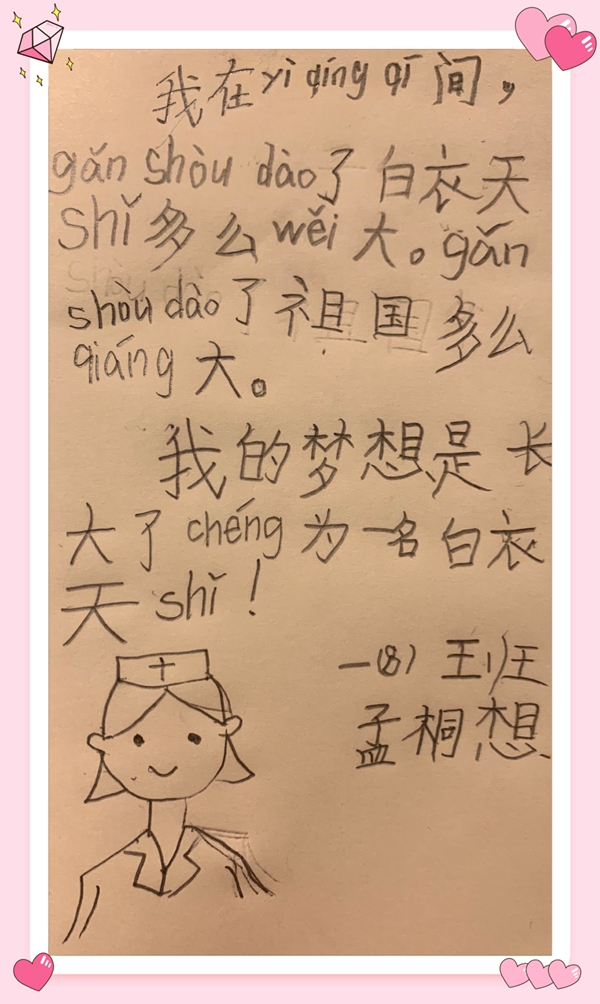 我在yì qíng qī间，
gǎn shòu dào了白衣天
shǐ多么wěi大。gǎn
shòu dào了祖国多么
qiáng大。
我的梦想是长
大了chéng为一名白衣
天shǐ！
一(8)班
孟桐想